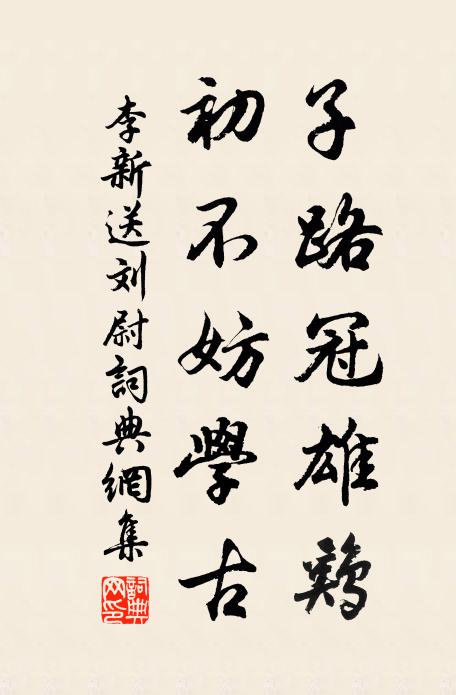 子路冠雄鷄
初不妨學古
李新送刘尉詞典網集
詞典网印